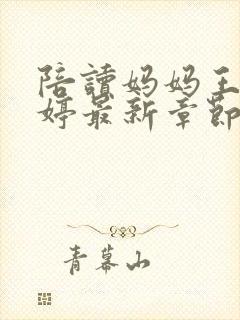 陪讀妈妈王
婷最新章節
青幕山